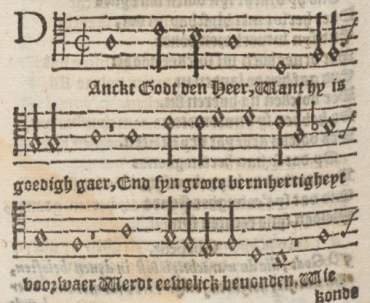 D
Anckt Godt den Heer, Want hy is
goedigh gaer, End syn groote bermhertigheyt
voorwaer Werdt eewelick bevonden, Wie
konde